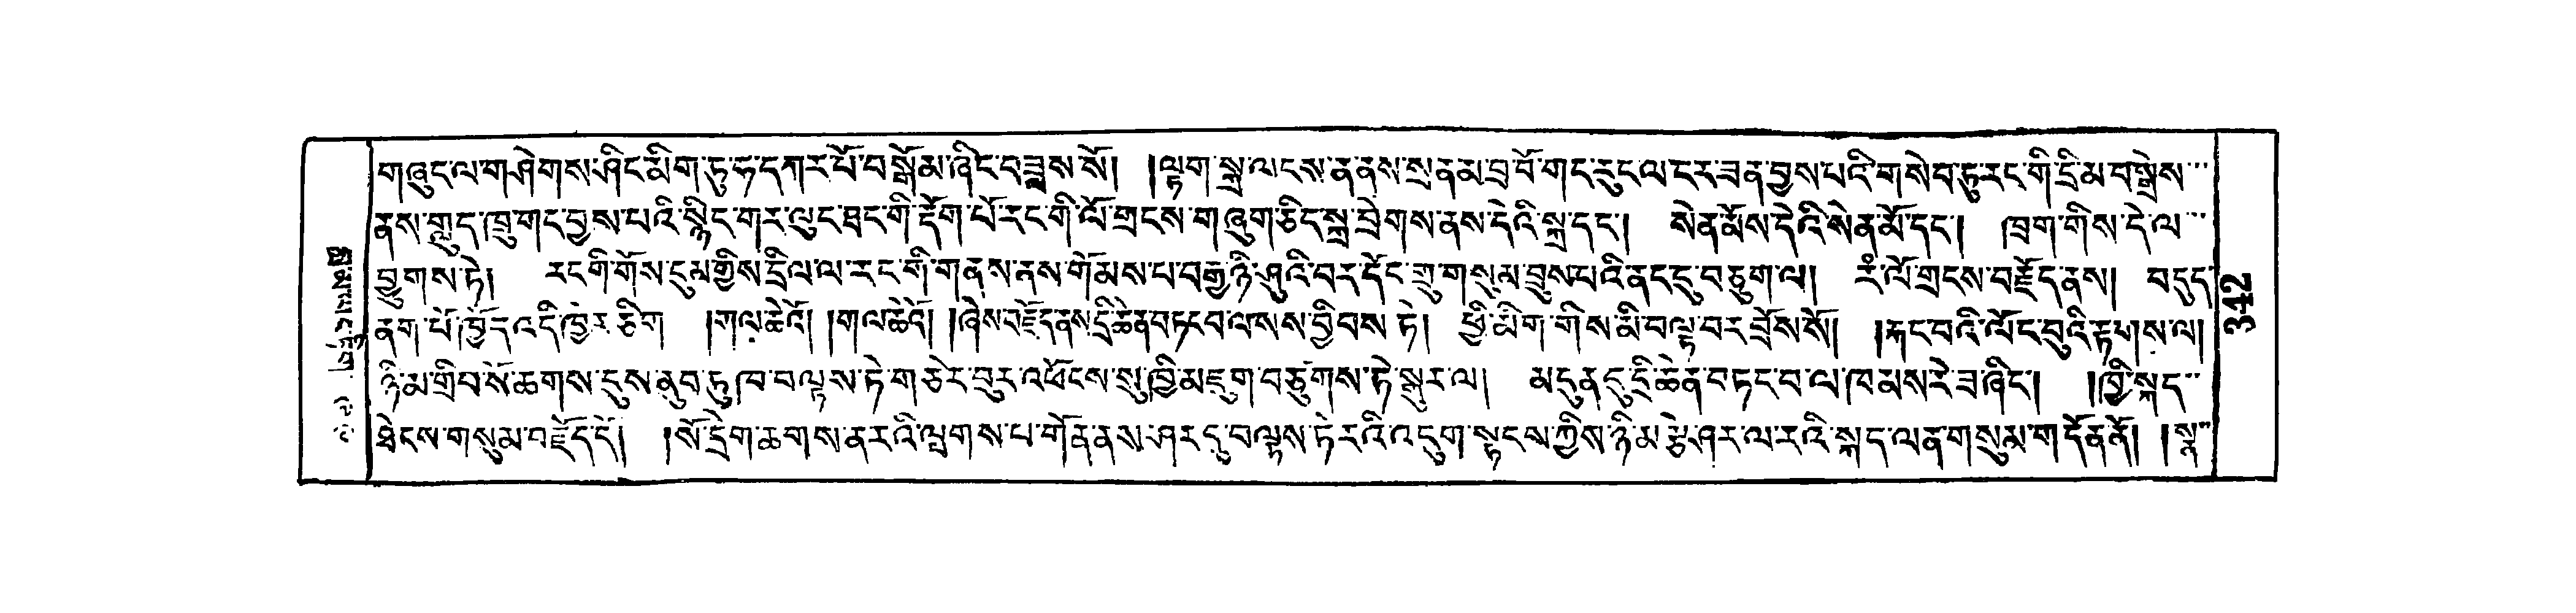 གཞུང་ལ་གཤེགས་ཤིང་མིག་ཏུ་ཧ་དཀར་པོ་བསྒོམ་ཞིང་བཟླས་སོ། །ལྟག་སྐྲ་ལངས་ན་ནས་སྲན་མ་བྲ་བོ་གང་རུང་ལ་ངར་ཟན་བྱས་པའི་གསེབ་ཏུ་རང་གི་དྲི་མ་བསྒྲེས་
ནས་གླུད་ཁྲུ་གང་བྱས་པའི་སྙིང་གར་ལུང་ཐང་གི་རྡོག་པོ་རང་གི་ལོ་གྲངས་གཞུག་ཅིང་སྐྲ་བྲེགས་ནས་དེའི་སྐྲ་དང་། སེན་མོས་དེའི་སེན་མོ་དང་། ཁྲག་གིས་དེ་ལ་
བྱུགས་ཏེ། རང་གི་གོས་དུམ་གྱིས་དྲིལ་ལ་རང་གི་གནས་ནས་གོམས་པ་བརྒྱ་ཉི་ཤུའི་བར་དོང་གྲུ་གསུམ་བྲུས་པའི་ནང་དུ་བཅུག་ལ། རྃ་ལོ་གྲངས་བརྗོད་ནས། བདུད་
ནག་པོ་ཁྱོད་འདི་ཁྱེར་ཅིག །གལ་ཆེའོ། །གལ་ཆེའོ། །ཞེས་བརྗོད་ནས་དྲི་ཆེན་བཏང་བ་ལ་སས་བྱིབས་ཏེ། ཕྱི་མིག་གིས་མི་བལྟ་བར་བྲོས་སོ། །རྐང་བའི་ལོང་བུའི་རྟཔས་ལ།
ཉི་མ་གྲིབ་སོ་ཆགས་དུས་ནུབ་ཏུ་ཁ་བལྟས་ཏེ་གཅེར་བུར་འཕོངས་སུ་ཁྱི་མཇུག་བཙུགས་ཏེ་སྒུར་ལ། མདུན་དུ་དྲི་ཆེན་བཏང་བ་ལ་ཁམས་རེ་ཟ་ཞིང་། །ཁྱི་སྐད་
ཐེངས་གསུམ་བརྗོད་དོ། །སོ་དྲེག་ཆགས་ན་རའི་ལྤགས་པ་གོན་ནས་ཤར་དུ་བལྟས་ཏེ་རའི་འདུག་སྟངས་ཀྱིས་ཉི་མ་རྩེ་ཤར་ལ་རའི་སྐད་ལན་གསུམ་གདོན་ནོ། །སྣ་